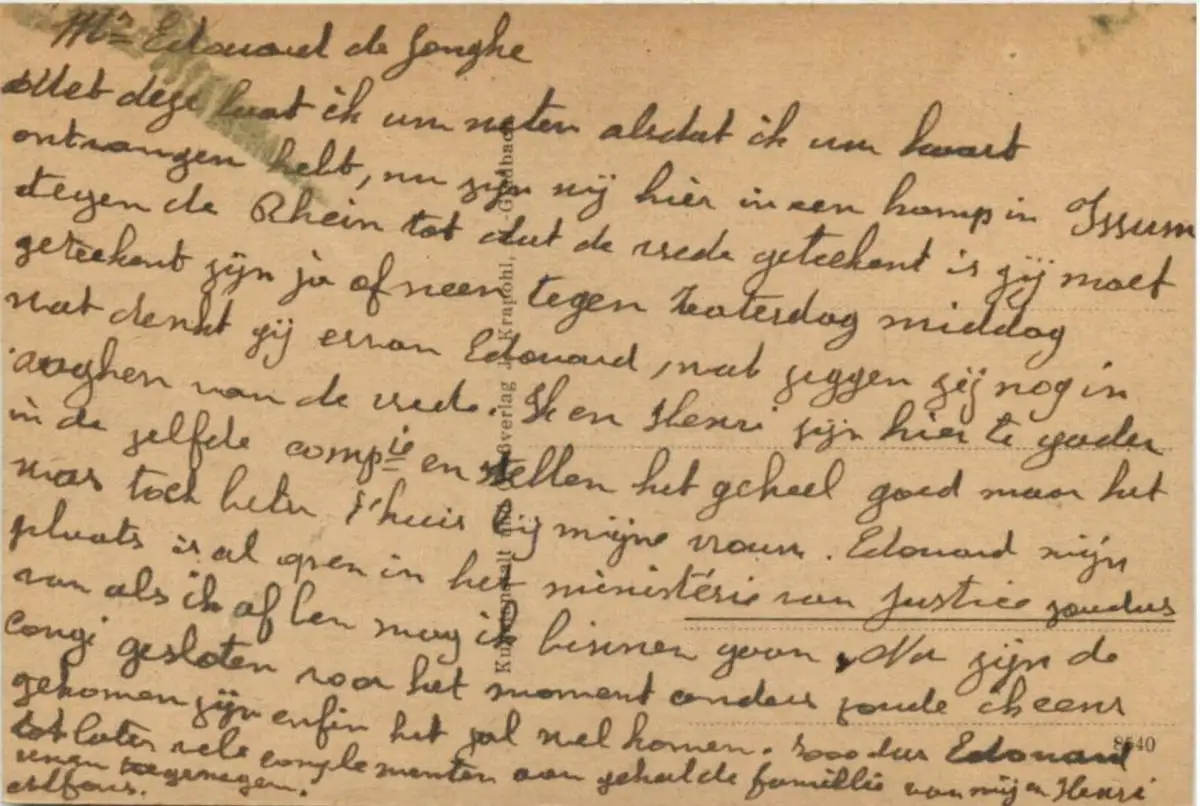 Mr Edouard de Jonghe
Met deze laat ik uw weten alsdat ik uw kaart
ontvangen hebt, nu zijn wij hier in een kamp in Issum
tegen de Rhein tot dat de vrede geteekent is zij moet
geteekent zijn ja of neen tegen Zaterdag middag
wat denkt gij ervan Edouard, wat zeggen zij nog in
van de vrede. Ik en Henri zijn hier te gader
in de zelfde compie en stellen het geheel goed maar het
was toch beter t'huis bij mijne vrouw. Edouard mijn
plaats is al open in het ministérie van Justice zoodus
van als ik af ben mag ik binnen gaan. Nu zijn de
congi gesloten voor het moment anders zoude ik eens
gekomen zijn enfin het zal wel komen. Zoo dus Edouard
tot later vele complementen aan geheel de famillie van mij en Henri
uwen toegenegen.
Alfons.
Kunstanstalt und Verlag J. Krapohl, -Gladbach
8540